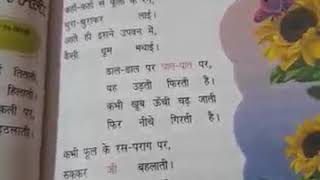 कहाँ-कहाँ से फूलों के रंग,
चुरा-चुराकर लाई।
आते ही इसने उपवन में,
कैसी धूम मचाई।
डाल-डाल पर पात-पात पर,
यह उड़ती फिरती है।
कभी खूब ऊँची चढ़ जाती
फिर नीचे गिरती है।
कभी फूल के रस-पराग पर,
रुककर जी बहलाती।
तितली,
हिलाती।
पर,